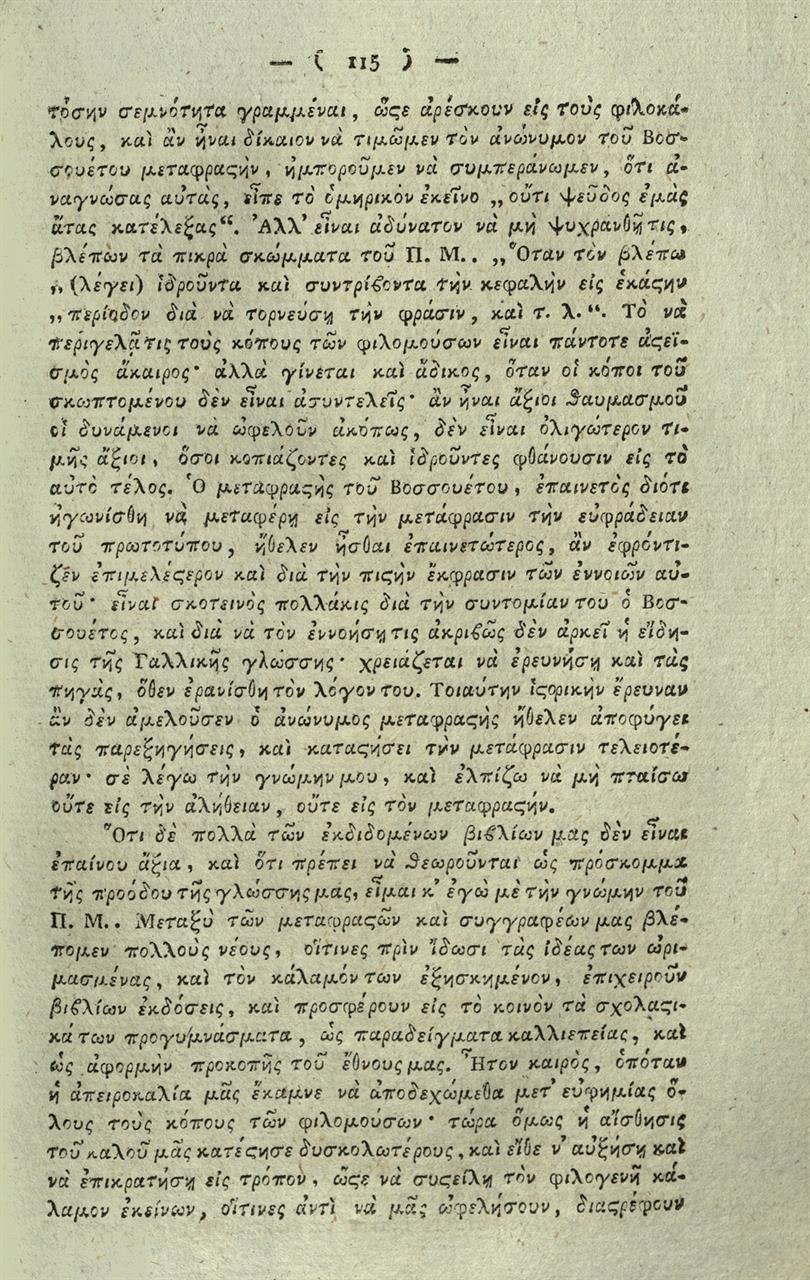 — ( 115 ) —
τόσην σεμνότητα γραμμέναι, ὥϛε ἀρέσκουν εἰς τοὺς φιλοκά-
λους, καὶ ἂν ἦναι δίκαιον νὰ τιμῶμεν τὸν ἀνώνυμον τοῦ Βοσ-
σουέτου μεταφραϛὴν, ἠμποροῦμεν νὰ συμπεράνωμεν, ὅτι ἀ-
ναγνώσας αὐτὰς, εἶπε τὸ ὁμηρικὸν ἐκεῖνο „οὔτι ψεῦδος ἐμὰς
ἄτας κατέλεξας“. Ἀλλ' εἶναι ἀδύνατον νὰ μὴ ψυχρανθῇ τις,
βλέπων τὰ πικρὰ σκώμματα τοῦ Π. Μ.. „Ὅταν τὸν βλέπω
„ (λέγει) ἱδροῦντα καὶ συντρίβοντα τὴν κεφαλὴν εἰς ἑκάϛην
„περίοδον διὰ νὰ τορνεύσῃ τὴν φράσιν, καὶ τ. λ.“. Τὸ νὰ
περιγελᾷ τις τοὺς κόπους τῶν φιλομούσων εἶναι πάντοτε ἀϛεϊ-
σμὸς ἄκαιρος· ἀλλὰ γίνεται καὶ ἄδικος, ὅταν οἱ κόποι τοῦ
σκωπτομένου δὲν εἶναι ἀσυντελεῖς· ἂν ἦναι ἄξιοι θαυμασμοῦ
οἱ δυνάμενοι νὰ ὠφελοῦν ἀκόπως, δὲν εἶναι ὀλιγώτερον τι-
μῆς ἄξιοι, ὅσοι κοπιάζοντες καὶ ἱδροῦντες φθάνουσιν εἰς τὸ
αὐτὸ τέλος. Ὁ μεταφραϛὴς τοῦ Βοσσουέτου, ἐπαινετὸς διότι
ἠγωνίσθη νὰ μεταφέρῃ εἰς τὴν μετάφρασιν τὴν εὐφράδειαν
τοῦ πρωτοτύπου, ἤθελεν ἦσθαι ἐπαινετώτερος, ἂν ἐφρόντι-
ζεν ἐπιμελέϛερον καὶ διὰ τὴν πιϛὴν ἔκφρασιν τῶν ἐννοιῶν αὐ-
τοῦ· εἶναι σκοτεινὸς πολλάκις διὰ τὴν συντομίαν του ὁ Βοσ-
σουέτος, καὶ διὰ νὰ τὸν ἐννοήσῃ τις ἀκριβῶς δὲν ἀρκεῖ ἡ εἴδη-
σις τῆς Γαλλικῆς γλώσσης· χρειάζεται νὰ ἐρευνήσῃ καὶ τὰς
πηγὰς, ὅθεν ἐρανίσθη τὸν λόγον του. Τοιαύτην ἱϛορικὴν ἔρευναν
ἂν δὲν ἀμελοῦσεν ὁ ἀνώνυμος μεταφραϛὴς ἤθελεν ἀποφύγει
τὰς παρεξηγήσεις, καὶ καταϛήσει τὴν μετάφρασιν τελειοτέ-
ραν· σὲ λέγω τὴν γνώμην μου, καὶ ἐλπίζω νὰ μὴ πταίσω
οὔτε εἰς τὴν ἀλήθειαν, οὔτε εἰς τὸν μεταφραϛήν.
Ὅτι δὲ πολλὰ τῶν ἐκδιδομένων βιβλίων μας δὲν εἶναι
ἐπαίνου ἄξια, καὶ ὅτι πρέπει νὰ θεωροῦνται ὡς πρόσκομμα
τῆς προόδου τῆς γλώσσης μας, εἶμαι κ' ἐγὼ μὲ τὴν γνώμην τοῦ
Π. Μ.. Μεταξὺ τῶν μεταφραϛῶν καὶ συγγραφέων μας βλέ-
πομεν πολλοὺς νέους, οἵτινες πρὶν ἴδωσι τὰς ἰδέας των ὡρι-
μασμένας, καὶ τὸν κάλαμόν των ἐξησκημένον, ἐπιχειροῦν
βιβλίων ἐκδόσεις, καὶ προσφέρουν εἰς τὸ κοινὸν τὰ σχολαϛι-
κά των προγυμνάσματα, ὡς παραδείγματα καλλιεπείας, καὶ
ὡς ἀφορμὴν προκοπῆς τοῦ ἔθνους μας. Ἦτον καιρὸς, ὁπόταν
ἡ ἀπειροκαλία μᾶς ἔκαμνε νὰ ἀποδεχώμεθα μετ' εὐφημίας ὅ-
λους τοὺς κόπους τῶν φιλομούσων· τώρα ὅμως ἡ αἴσθησις
τοῦ καλοῦ μᾶς κατέϛησε δυσκολωτέρους, καὶ εἴθε ν' αὐξήσῃ καὶ
νὰ ἐπικρατήσῃ εἰς τρόπον, ὥϛε νὰ συϛείλῃ τὸν φιλογενῆ κά-
λαμον ἐκείνων, οἵτινες ἀντὶ νὰ μᾶς ὠφελήσουν, διαϛρέφουν